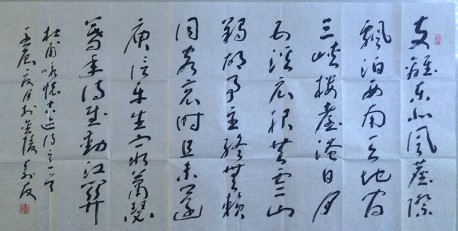 支離東北風塵際
飄泊西南天地間
三峽樓臺淹日月
五溪衣服共雲山
羯胡事主終無賴
詞客哀時且未還
庾信平生最蕭瑟
暮年詩賦動江關
杜甫詠懷古迹詩之一
壬辰夏月於金陵